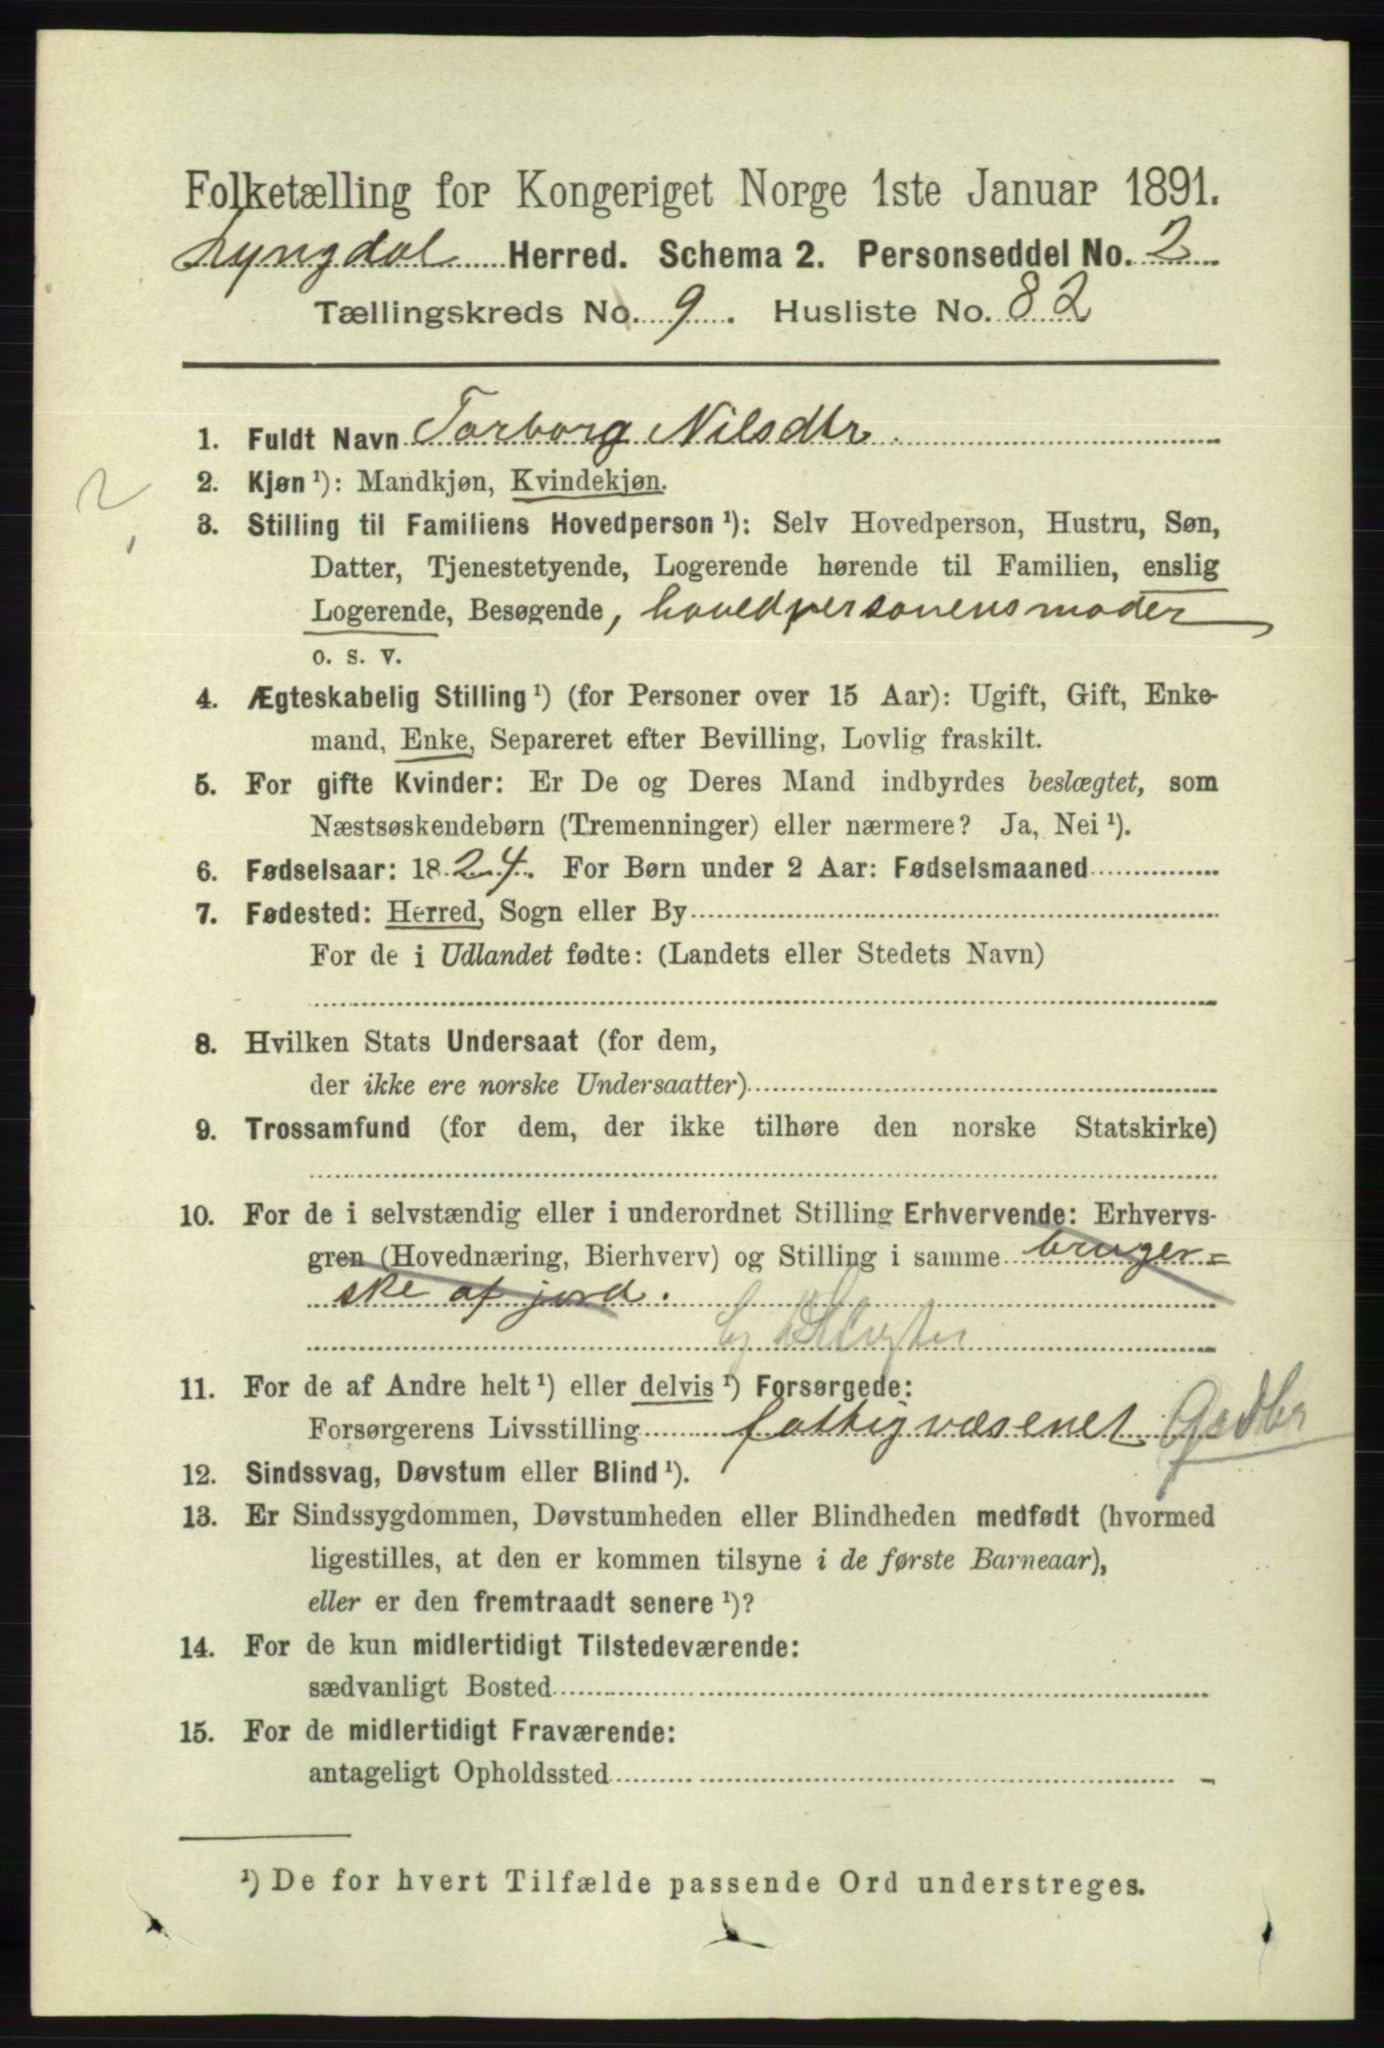 Folketælling for Kongeriget Norge 1ste Januar 1891.
Lyngdal Herred. Schema 2. Personseddel No. 2
Tællingskreds No. 9. Husliste No. 82
1. Fuldt Navn Torborg Nilsdtr.
2. Kjøn ¹): Mandkjøn, Kvindekjøn.
3. Stilling til Familiens Hovedperson ¹): Selv Hovedperson, Hustru, Søn,
Datter, Tjenestetyende, Logerende hørende til Familien, enslig
Logerende, Besøgende, hovedpersonens moder
o. s. v.
4. Ægteskabelig Stilling ¹) (for Personer over 15 Aar): Ugift, Gift, Enke-
mand, Enke, Separeret efter Bevilling, Lovlig fraskilt.
5. For gifte Kvinder: Er De og Deres Mand indbyrdes beslægtet, som
Næstsøskendebørn (Tremenninger) eller nærmere? Ja, Nei ¹).
6. Fødselsaar: 1824. For Børn under 2 Aar: Fødselsmaaned
7. Fødested: Herred, Sogn eller By
For de i Udlandet fødte: (Landets eller Stedets Navn)
8. Hvilken Stats Undersaat (for dem,
der ikke ere norske Undersaatter)
9. Trossamfund (for dem, der ikke tilhøre den norske Statskirke)
10. For de i selvstændig eller i underordnet Stilling Erhvervende: Erhvervs-
gren (Hovednæring, Bierhverv) og Stilling i samme bruger=
ske af jord.
11. For de af Andre helt ¹) eller delvis ¹) Forsørgede:
Forsørgerens Livsstilling fattigvæsenet
12. Sindssvag, Døvstum eller Blind ¹).
13. Er Sindssygdommen, Døvstumheden eller Blindheden medfødt (hvormed
ligestilles, at den er kommen tilsyne i de første Barneaar),
eller er den fremtraadt senere ¹)?
14. For de kun midlertidigt Tilstedeværende:
sædvanligt Bosted
15. For de midlertidigt Fraværende:
antageligt Opholdssted
¹) De for hvert Tilfælde passende Ord understreges.